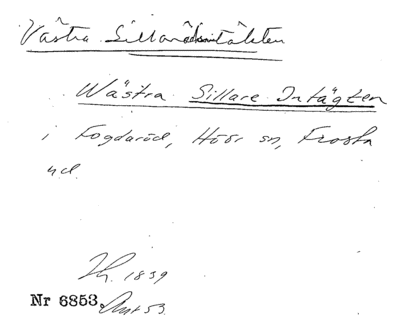 Västra Sillaröds­intäkten
Wästra Sillare Intägten
i Fogdaröd, Höör sn, Frosta
hd.
1839
Nr 6853